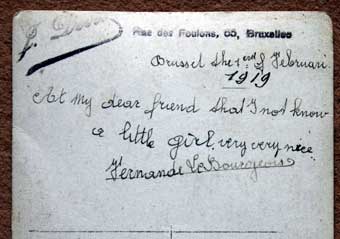 Rue des Foulons, 65, Bruxelles
Brussel the 1 est of Februari
1919
At my dear friend that I not know
a little girl, very very nice
Fernande LeBourgeois